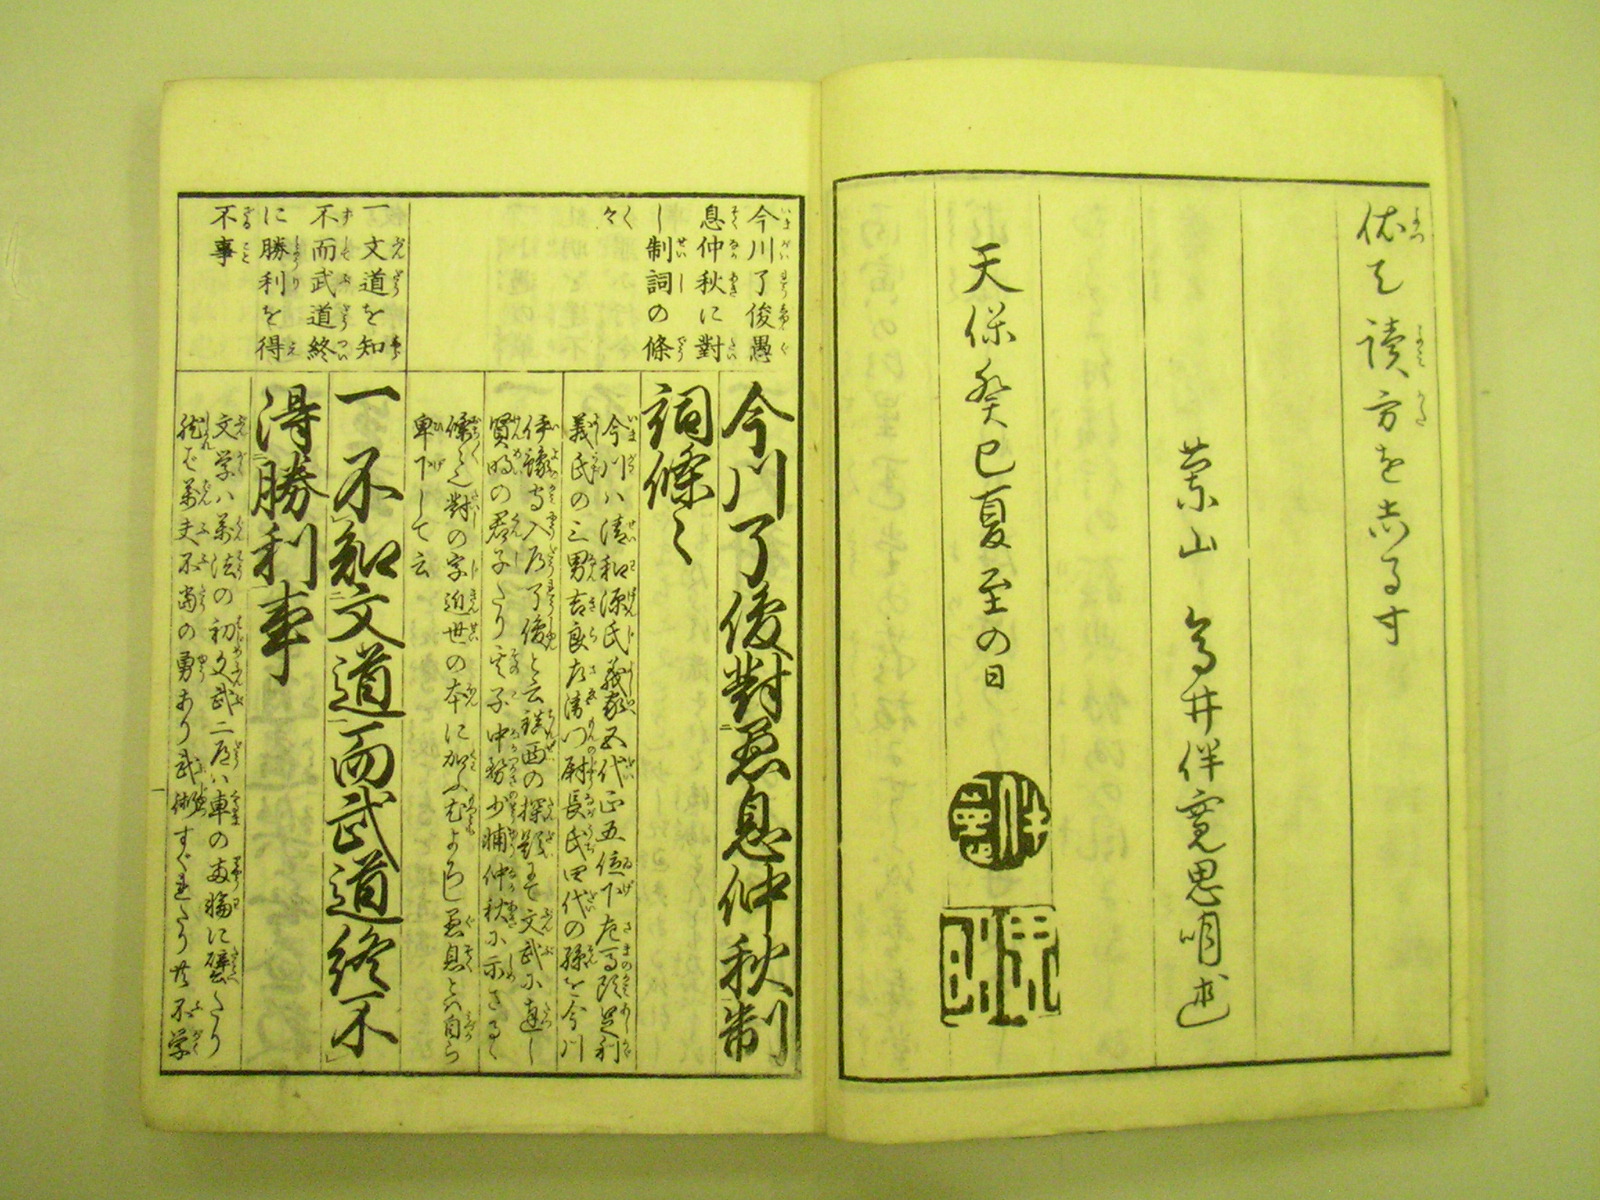 依て読方を去るす
蘭山 高井伴寛思明述
天保癸巳夏至の日
今川了俊愚
息仲秋に對
し制詞の條
々
一 文道を知
不而武道終
に勝利を得
不事
今川了俊對愚息仲秋制
詞條々
今川ハ清和源氏義家五代正五位下左馬頭足利
義氏の三男吉良左衛門尉長氏四代の孫を今川
伊豫守入道了俊と云鎮西の探題にて文武に達し
賢明の君子たり其子中務少輔仲秋に示さるゝ
條々也對の字近世の本に加ふむよろし愚息とハ自ら
卑下して云
一不知文道而武道終不
得勝利事
文学ハ萬法の初文武二道ハ車の両輪に譬たり
然ば萬夫不當の勇あり武術すぐれたり共不学